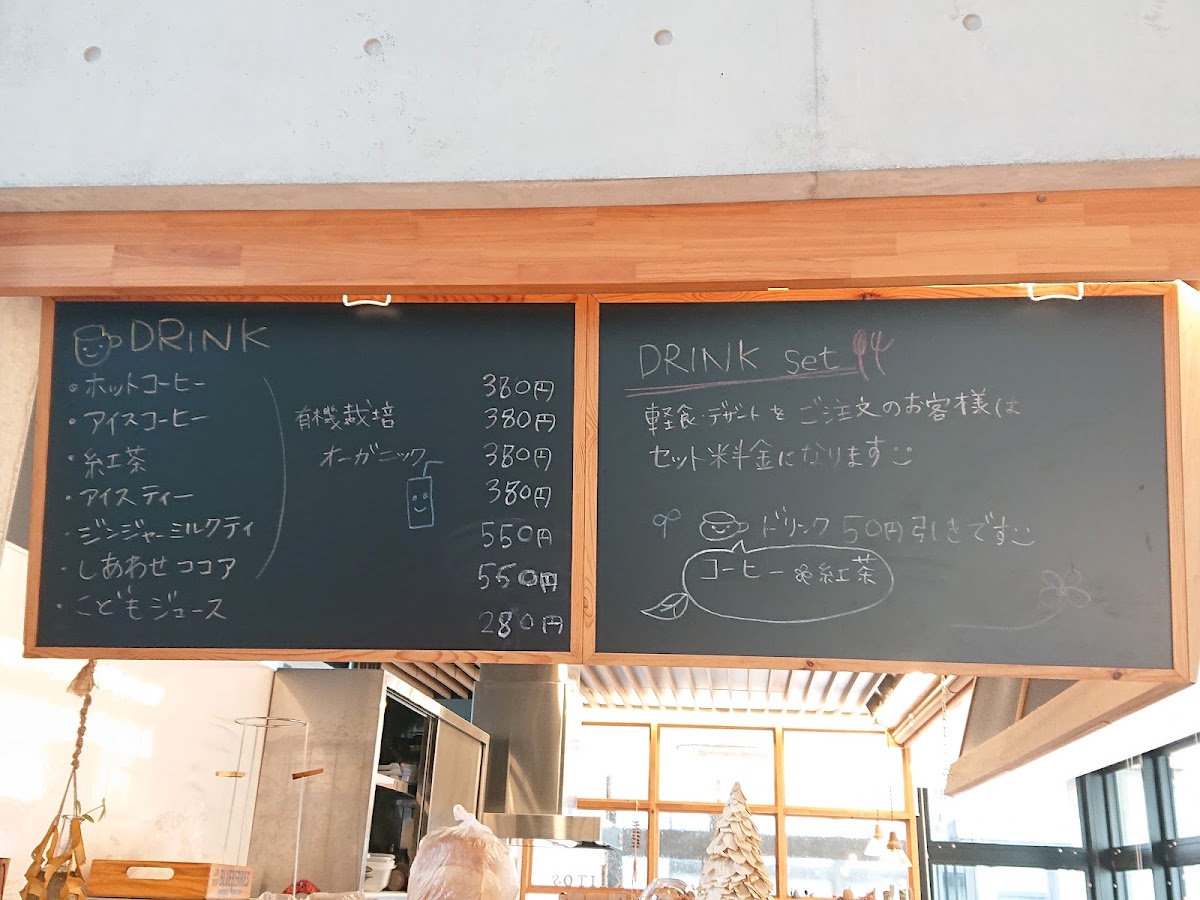 DRINK
・ホットコーヒー 380円
・アイスコーヒー 有機栽培 380円
・紅茶 オーガニック 380円
・アイスティー 380円
・ジンジャーミルクティ 550円
・しあわせココア 550円
・こどもジュース 280円
DRINK set
軽食・デザートをご注文のお客様は
セット料金になります
ドリンク50円引きです
コーヒー 紅茶
BLUEBERRIES
ITOS